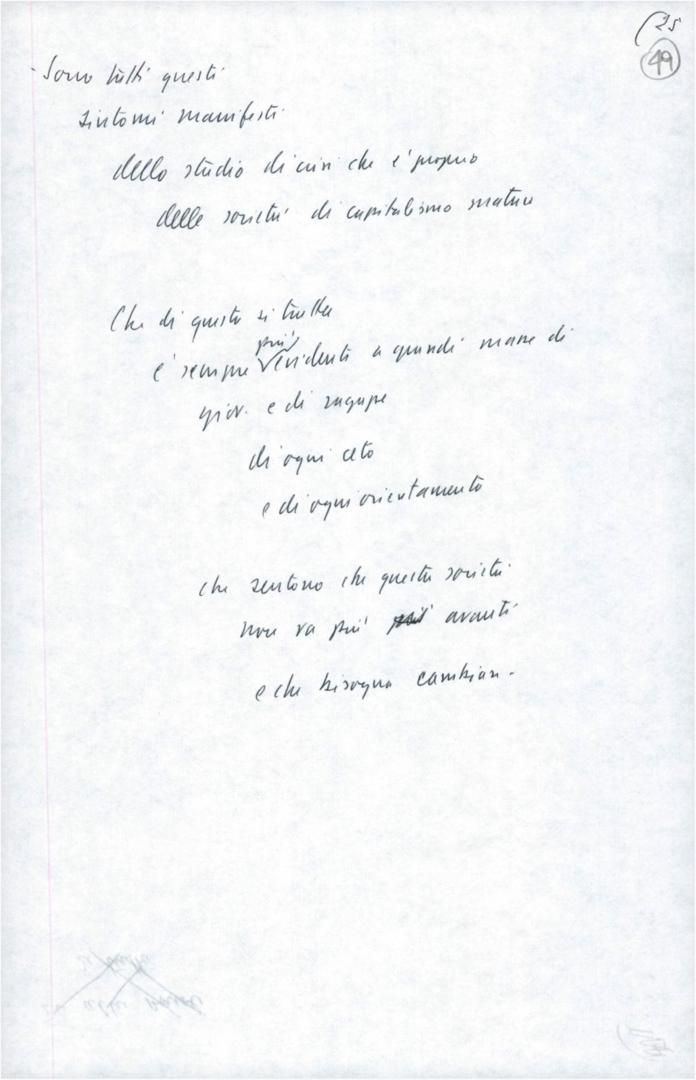 (25
49
- Sono tutti questi
sintomi manifesti
dello stadio di crisi che è proprio
delle società di capitalismo maturo
Che di questo si tratta
più
è sempre evidente a grandi masse di
giov. e di ragazze
di ogni ceto
e di ogni orientamento
che sentono che questa società
non va più avanti
e che bisogna cambiare.